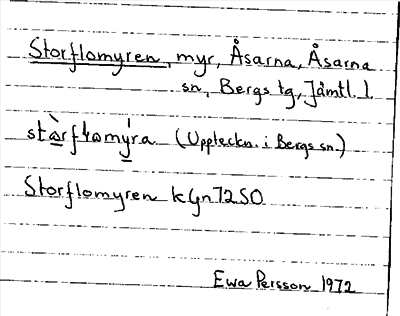 Storflomyren, myr, Åsarna, Åsarna
sn, Bergs tg, Jämtl. l.
(Uppteckn. i Bergs sn.)
Storflomyren kGn72SO
Ewa Persson 1972